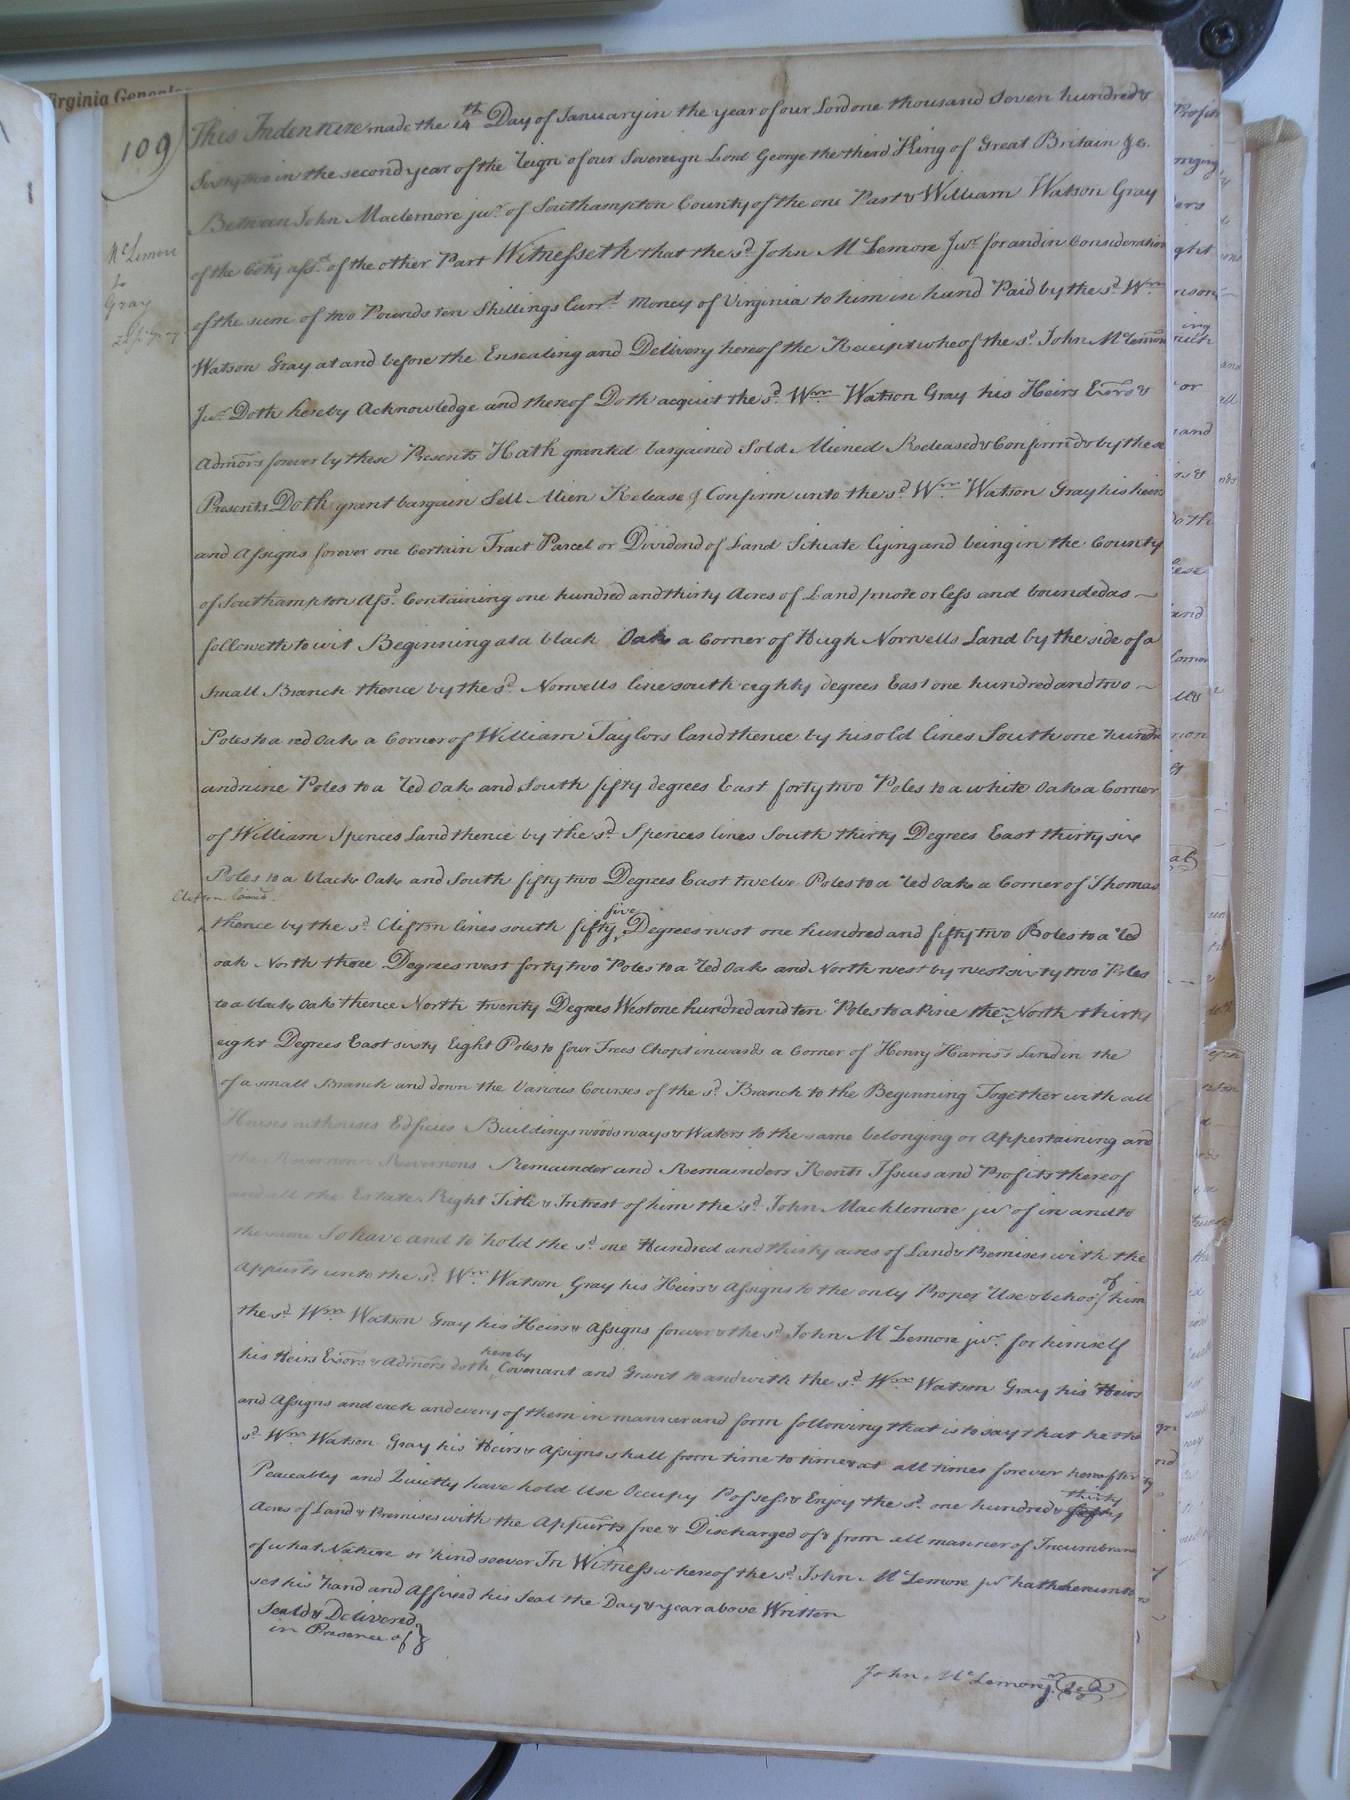 Virginia Genealo
109
McLemore
to
Gray
This Indenture made the 14th Day of January in the year of our Lord one thousand Seven hundred &
Sixty two in the second year of the Reign of our Sovereign Lord George the third King of Great Britain &c.
Between John Maclemore junr. of Southampton County of the one Part & William Watson Gray
of the Coty afsd. of the other Part Witnesseth that the sd. John McLemore Junr. for and in Consideration
of the sum of two Pounds ten Shillings Currt. Money of Virginia to him in hand Paid by the sd. Wm.
Watson Gray at and before the Ensealing and Delivery hereof the Receipt wheof the sd. John McLemore
Junr. Doth hereby Acknowledge and thereof Doth acquit the sd. Wm. Watson Gray his Heirs Exors &
Admors forever by these Presents Hath granted bargained Sold Aliened Released & Confirmd & by these
Presents Doth grant bargain Sell Alien Release & Confirm unto the sd. Wm. Watson Gray his heirs
and Assigns forever one Certain Tract Parcel or Dividend of Land Situate lying and being in the County
of Southampton Afsd. Containing one hundred and thirty Acres of Land / more or less and bounded as ~
followeth to wit Beginning at a black Oak a Corner of Hugh Norvells Land by the side of a
small Branch thence by the sd. Norvells line south eighty degrees East one hundred and two ~
Poles to a red Oak a Corner of William Taylors land thence by his old lines South one hundr
and nine Poles to a Red Oak and South fifty degrees East forty two Poles to a white Oak a Corner
of William Spences Land thence by the sd. Spences lines South thirty Degrees East thirty six
Poles to a black Oak and South fifty two Degrees East twelve Poles to a Red Oak a Corner of Thomas
Clifton Land.
thence by the sd. Clifton lines south fifty five Degrees west one hundred and fifty two Poles to a Red
oak North three Degrees west forty two Poles to a Red Oak and North west by west sixty two Poles
to a black Oak thence North twenty Degrees West one hundred and ten Poles to a Pine the~ North thirty
eight Degrees East sixty Eight Poles to four Trees Chopt inwards a Corner of Henry Harris's Land in the
of a small Branch and down the Various Courses of the sd. Branch to the Beginning Together with all
Houses outhouses Edfices Buildings woods ways & Waters to the same belonging or Appertaining and
the Revernon Revernons Remainder and Remainders Rents Issues and Profits thereof
and all the Estate Right Title & Intrest of him the sd. John Macklemore jur of in and to
the same To have and to hold the sd. one Hundred and thirty acres of Land & Premises with the
Appurts unto the sd. Wm. Watson Gray his Heirs & Assigns to the only Proper Use & behoof of him
the sd. Wm. Watson Gray his Heirs & Assigns forever & the sd. John McLemore jur. for himself
his Heirs Exors & Admors doth hereby Covenant and Grant to and with the sd. Wm. Watson Gray his Heirs
and Assigns and each and every of them in manner and form following that is to say that he the
sd. Wm. Watson Gray his Heirs & Assigns shall from time to time & at all times forever hereafter
Peaceably and Quietly have hold Use Occupy Possess & Enjoy the sd. one hundred & thirty
Acres of Land & Premises with the Appurts free & Discharged of & from all manner of Incumbrance
of what Nature or kind soever In Witness whereof the sd. John McLemore jur hath hereunto
set his hand and Affixed his Seal the Day & year above Written
Seald & Delivered
in Presence of
John McLemore jr. Seal